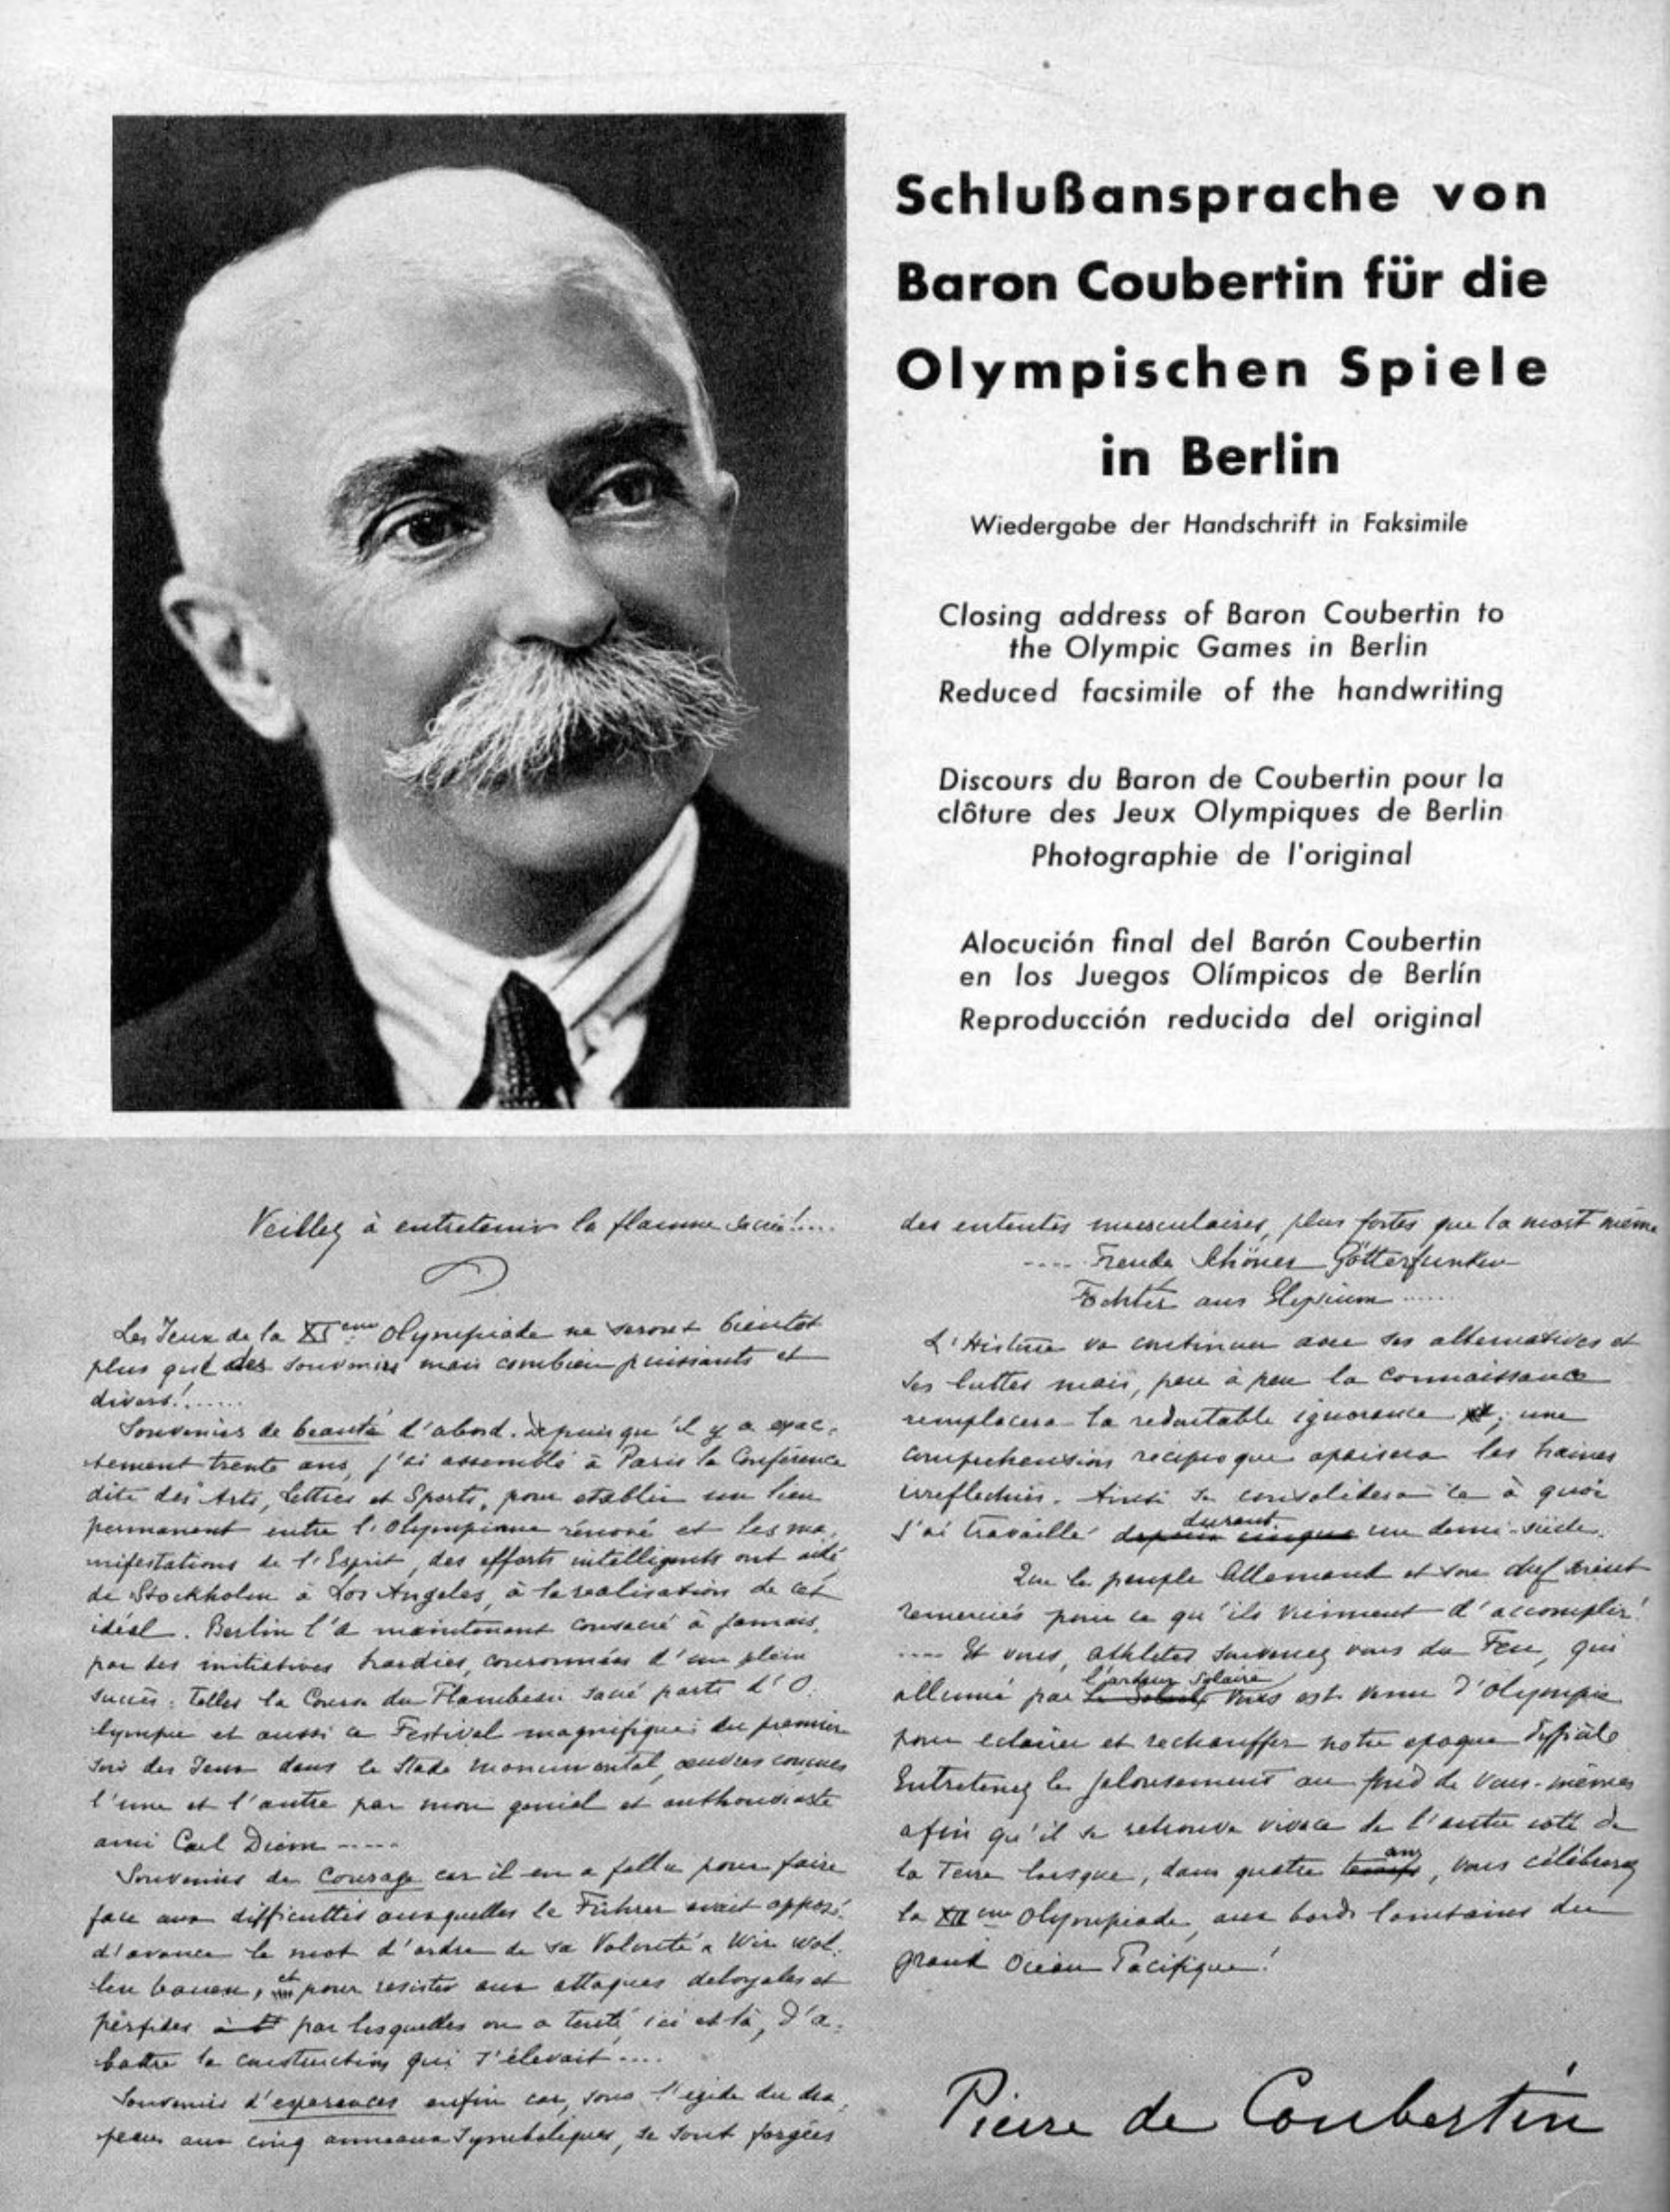 Schlußansprache von
Baron Coubertin für die
Olympischen Spiele
in Berlin
Wiedergabe der Handschrift in Faksimile
Closing address of Baron Coubertin to
the Olympic Games in Berlin
Reduced facsimile of the handwriting
Discours du Baron de Coubertin pour la
clôture des Jeux Olympiques de Berlin
Photographie de l'original
Alocución final del Barón Coubertin
en los Juegos Olímpicos de Berlín
Reproducción reducida del original
Veillez à entretenir la flamme sacrée!....
Les Jeux de la XIeme Olympiade ne seront bientôt
plus que des souvenirs mais combien puissants et
divers!......
Souvenirs de beauté d'abord. Depuis qu'il y a exac-
tement trente ans, j'ai assemblé à Paris la Conférence
dite des Arts, Lettres et Sports, pour etablir un lien
permanent entre l'Olympisme rénové et les ma-
nifestations de l'Esprit, des efforts intelligents ont aidé
de Stockholm à Los Angeles, à la realisation de cet
idéal. Berlin l'a maintenant consacré à jamais,
par des initiatives hardies, couronnées d'un plein
succès: telles la Course du Flambeau sacré parti d'O-
lympie et aussi ce Festival magnifique du premier
soir des Jeux dans le Stade monumental, œuvres conçues
l'une et l'autre par mon genial et enthousiaste
ami Carl Diem -----
Souvenirs de Courage car il en a fallu pour faire
face aux difficultés auxquelles le Führer avait opposé
d'avance le mot d'ordre de sa Volonté « Wir wol-
len bauen, et pour resister aux attaques deloyales et
perfides par lesquelles on a tenté, ici et là, d'a-
battre la construction qui s'élevait....
Souvenirs d'esperances enfin car, sous l'egide du dra-
peau aux cinq anneaux symboliques, se sont forgées
des ententes musculaires, plus fortes que la mort même
.... Freude Schöner Götterfunken
Tochter aus Elysium ......
L'Histoire va continuer avec ses alternatives et
ses luttes mais, peu à peu la connaissance
remplacera la redoutable ignorance ; une
comprehension reciproque apaisera les haines
irreflechies. Ainsi se consolidera ce à quoi
j'ai travaillé durant un demi-siècle.
Que le peuple Allemand et son chef soient
remerciés pour ce qu'ils viennent d'accomplir!
.... Et vous, athletes souvenez vous du Feu, qui
allumé par l'ardeur solaire vous est venu d'Olympie
pour eclairer et rechauffer notre epoque
Entretenez le jalousement au fond de vous-mêmes
afin qu'il se retrouve vivace de l'autre coté de
la Terre lorsque, dans quatre ans, vous célébrerez
la XIIeme Olympiade, aux bords lointains du
grand Océan Pacifique!
Pierre de Coubertin